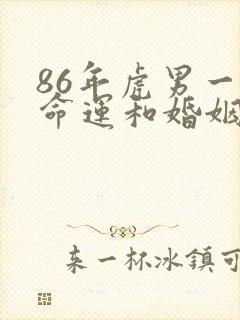 86年虎男一
命运和婚姻
来一杯冰鎮可